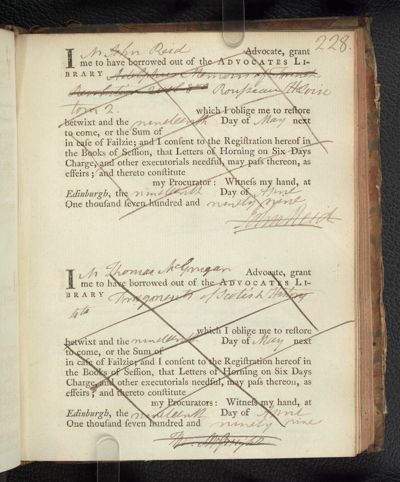 228.
I Mr John Reid Advocate, grant
me to have borrowed out of the ADVOCATES LI-
BRARY Adolphus Memoirs of French
Revolution 2 vol 8vo Rousseau Heloise
tom 2. which I oblige me to reſtore
betwixt and the nineteenth Day of May next
to come, or the Sum of
in caſe of Failzie; and I conſent to the Regiſtration hereof in
the Books of Seſſion, that Letters of Horning on Six Days
Charge, and other executorials needful, may paſs thereon, as
effeirs; and thereto conſtitute
my Procurator: Witneſs my hand, at
Edinburgh, the nineteenth Day of April
One thouſand ſeven hundred and ninety nine
John Reid
I Mr Thomas McGrugar Advocate, grant
me to have borrowed out of the ADVOCATES LI-
BRARY Fragments of Scotish History
4to
which I oblige me to reſtore
betwixt and the nineteenth Day of May next
to come, or the Sum of
in caſe of Failzie; and I conſent to the Regiſtration hereof in
the Books of Seſſion, that Letters of Horning on Six Days
Charge, and other executorials needful, may paſs thereon, as
effeirs; and thereto conſtitute
my Procurators: Witneſs my hand, at
Edinburgh, the nineteenth Day of April
One thouſand ſeven hundred and ninety nine
Tho. McGrugar